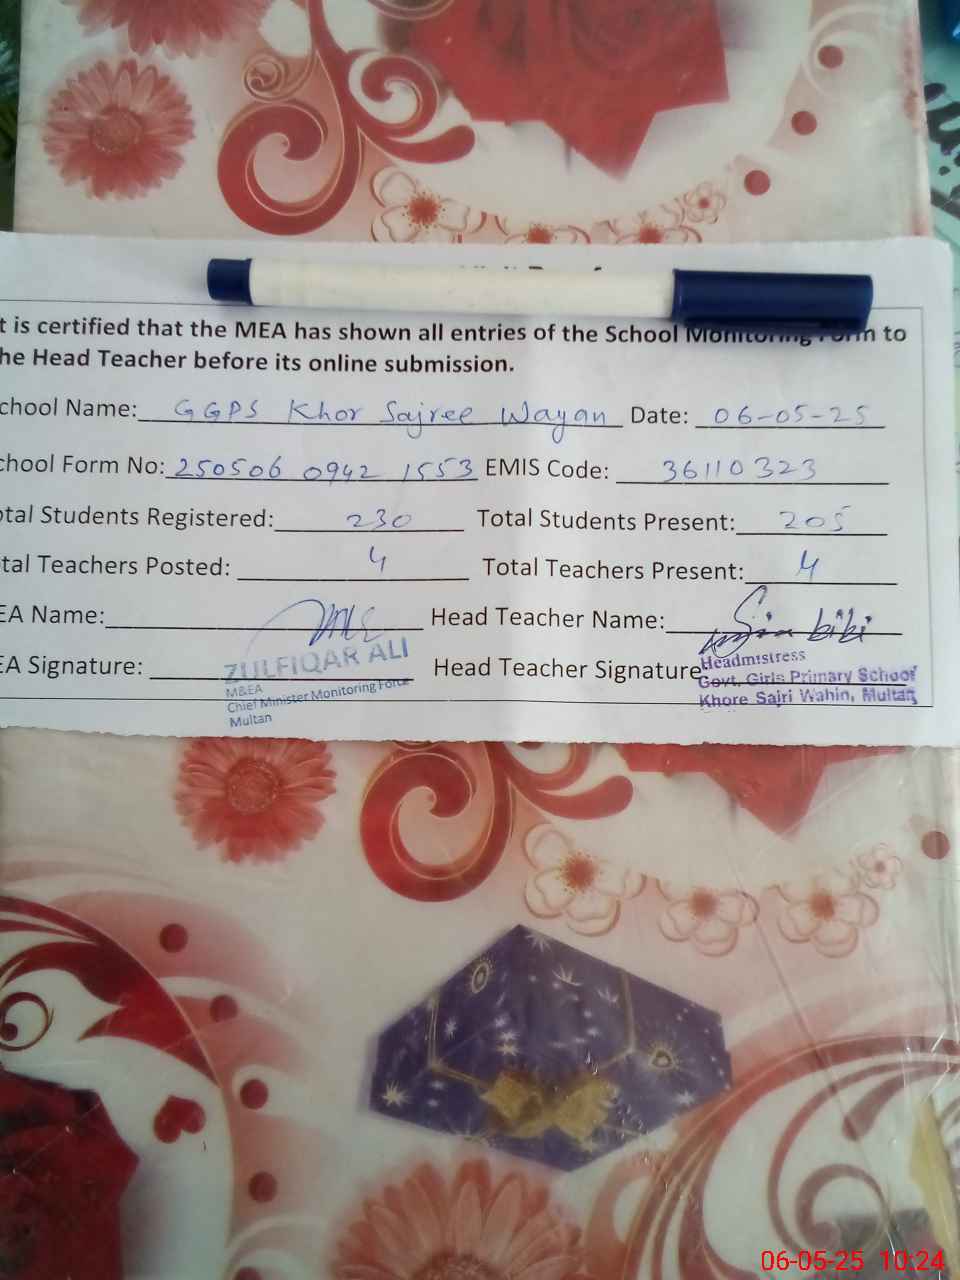 t is certified that the MEA has shown all entries of the School Monitoring Form to
he Head Teacher before its online submission.
chool Name: GGPS Khor Sajree Wayan Date: 06-05-25
chool Form No: 250506 0942 1553 EMIS Code: 36110323
otal Students Registered: 230 Total Students Present: 205
tal Teachers Posted: 4 Total Teachers Present: 4
EA Name: Head Teacher Name: bibi
EA Signature: Head Teacher Signature
ZULFIQAR ALI
M&EA
Chief Minister Monitoring Force
Multan
Headmistress
Govt. Girls Primary School
Khore Sajri Wahin, Multan
06-05-25 10:24